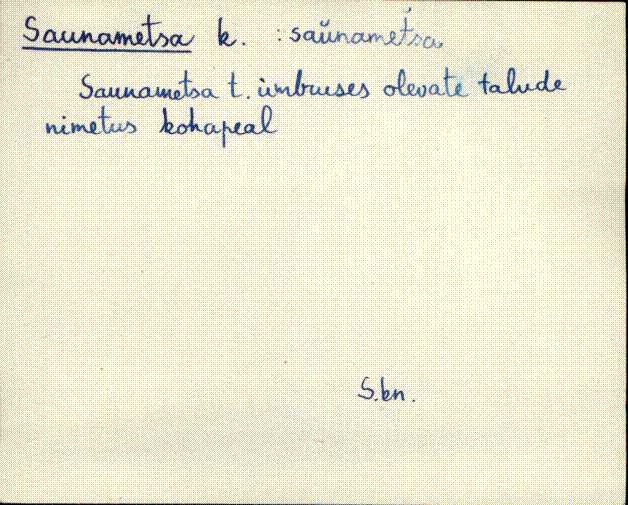 Saunametsa k. : saŭnamet́sa
Saunametsa t. ümbruses olevate talude
nimetus kohapeal
S.kn.